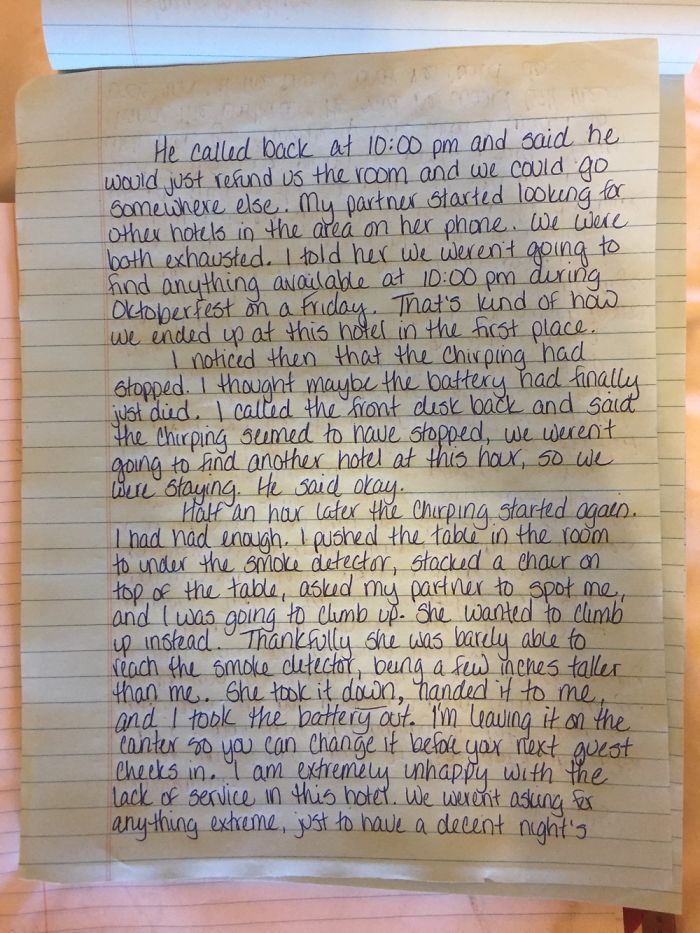 He called back at 10:00 pm and said he
would just refund us the room and we could go
somewhere else. My partner started looking for
other hotels in the area on her phone. We were
both exhausted. I told her we weren't going to
find anything available at 10:00 pm during
Oktoberfest on a Friday. That's kind of how
we ended up at this hotel in the first place.
I noticed then that the chirping had
stopped. I thought maybe the battery had finally
just died. I called the front desk back and said
the chirping seemed to have stopped, we weren't
going to find another hotel at this hour, so we
were staying. He said okay.
Half an hour later the chirping started again.
I had had enough. I pushed the table in the room
to under the smoke detector, stacked a chair on
top of the table, asked my partner to spot me,
and I was going to climb up. She wanted to climb
up instead. Thankfully she was barely able to
reach the smoke detector, being a few inches taller
than me. She took it down, handed it to me,
and I took the battery out. I'm leaving it on the
counter so you can change it before your next guest
checks in. I am extremely unhappy with the
lack of service in this hotel. We weren't asking for
anything extreme, just to have a decent night's